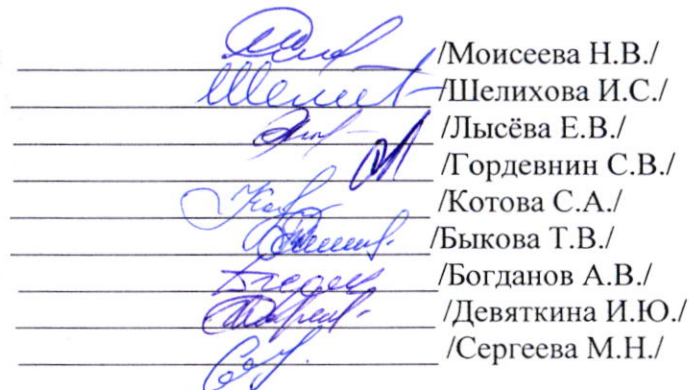 /Моисеева Н.В./
/Шелихова И.С./
/Лысёва Е.В./
/Гордевнин С.В./
/Котова С.А./
/Быкова Т.В./
/Богданов А.В./
/Девяткина И.Ю./
/Сергеева М.Н./